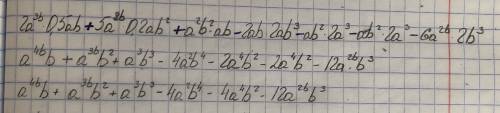 2a³ᵇ·0,5ab+5a³ᵇ·0,2ab²+a²b²·ab-2ab·2ab³-ab²·2a³-ab²·2a³-6a²ᵇ·2b³
a⁴ᵇb+a³ᵇb²+a³b³-4a²b⁴-2a⁴b²-2a⁴b²-12a²ᵇ·b³
a⁴ᵇb+a³ᵇb²+a³b³-4a²b⁴-4a⁴b²-12a²ᵇb³